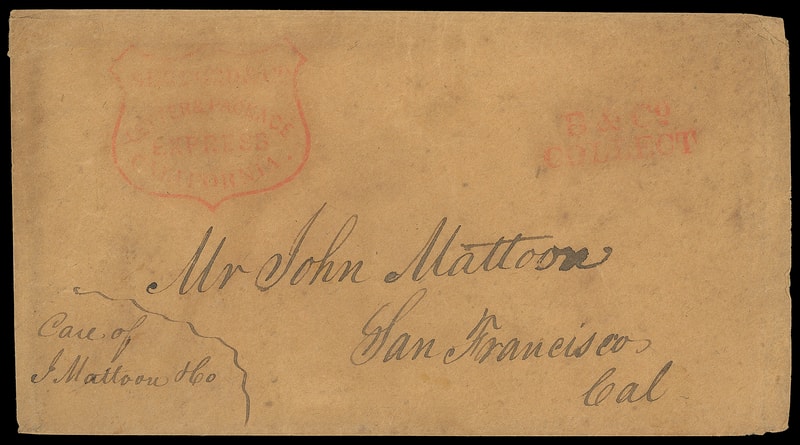 LETTER & PACKAGE
EXPRESS
CALIFORNIA.
B & Co
COLLECT
Mr John Mattoon
San Francisco
Cal
Care of
J Mattoon & Co